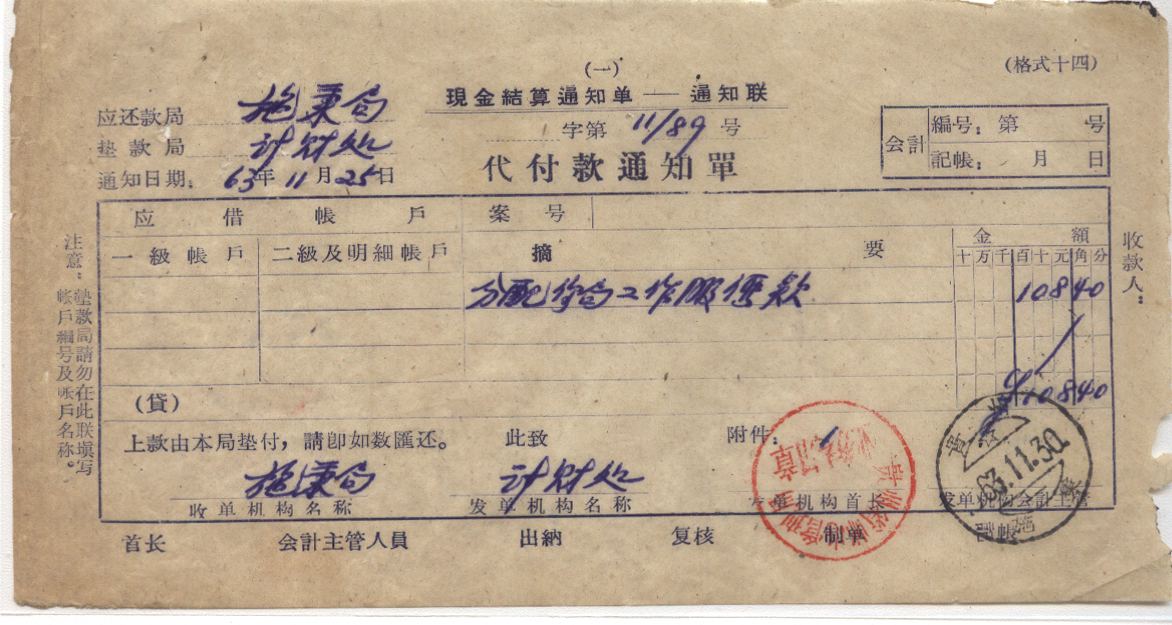 (格式十四)
(一)
現金結算通知单 — 通知联
应还款局 施秉局
字第 11/89 号
垫款局 计财处
代付款通知單
通知日期: 63年11月25日
会计 編号: 第 号
記帳: 月 日
应借帳戶 案号
一級帳戶 二級及明細帳戶 摘要 金額
十万千百十元角分
分配你局工作服 款 10840
¥10840
(貸)
上款由本局垫付,請卽如数匯还。 此致 附件: 1
施秉局 计财处
收单机构名称 发单机构名称 发单机构首长 发单机构会计主管
首长 会計主管人員 出納 复核 制单 記帳
注意:垫款局請勿在此联填写
帐戶編号及帐戶名称。
收款人:
貴州
63.11.30
施秉